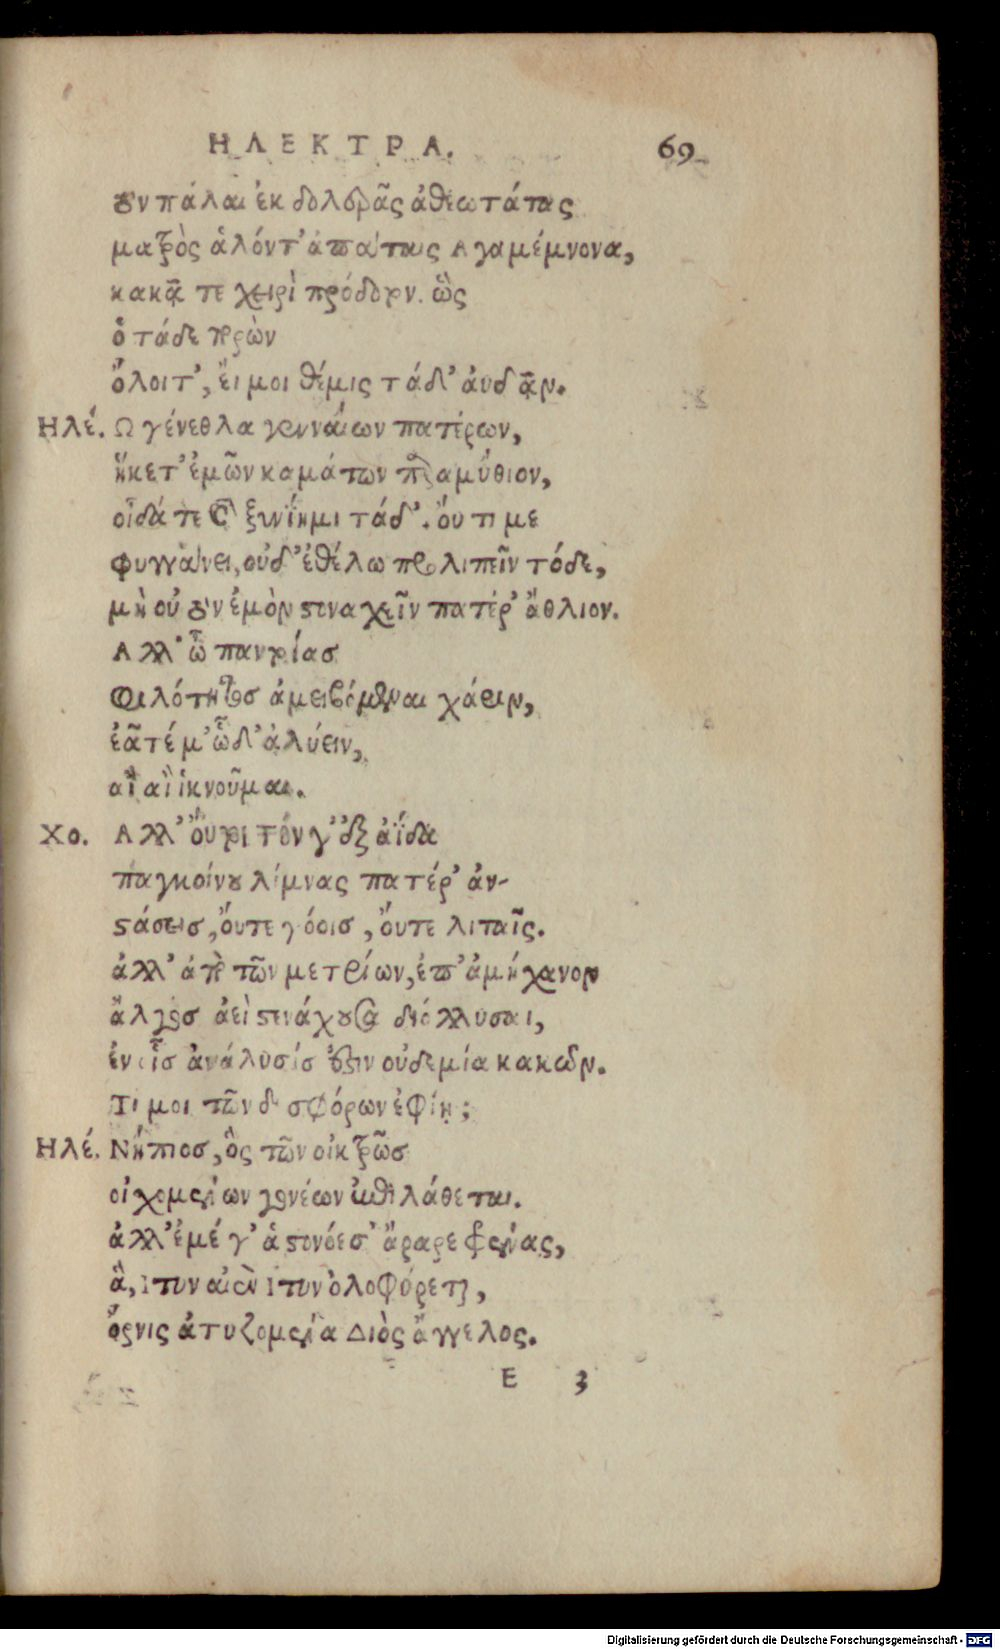 ΗΛΕΚΤΡΑ. 69
τὸν πάλαι ἐκ δολερᾶς ἀθεωτάτας
ματρὸς ἁλόντ' ἀπάταις Αγαμέμνονα,
κακᾷ τε χειρὶ πρόδοτον. ὣς
ὁ τάδε πορὼν
ὄλοιτ', ἔι μοι θέμις τάδ' ἀυδᾷν.
Ηλέ. Ω γένεθλα γενναίων πατέρων,
ἥκετ' ἐμῶν καμάτων παραμύθιον,
οἶδά τε καὶ ξυνίημι τάδ'. ὄυ τι με
φυγγάνει, οὐδ' ἐθέλω προλιπεῖν τόδε,
μὴ οὐ τὸν ἐμὸν στεναχεῖν πατέρ' ἄθλιον.
Αλλ' ὦ παντοίασ
Φιλότητοσ ἀμειβόμεναι χάριν,
ἐᾶτέ μ' ὧδ' ἀλύειν,
αἲ αἲ ἱκνοῦμαι.
Χο. Αλλ' ὄυτοι τόν γ' ἐξ ἀΐδα
παγκοίνου λίμνας πατέρ' ἀν-
στάσεισ, ὄυτε γόοισ, ὄυτε λιταῖς.
ἀλλ' ἀπὸ τῶν μετρίων, ἐπ' ἀμήχανον
ἄλγοσ ἀεὶ στενάχουσα διόλλυσαι,
ἐν οἷσ ἀνάλυσίσ ἐστιν οὐδεμία κακῶν.
Τί μοι τῶν δυσφόρων ἐφίῃ;
Ηλέ. Νήπιοσ, ὃς τῶν οἰκτρῶσ
οἰχομένων γονέων ἐπιλάθεται.
ἀλλ' ἐμέ γ' ἁ στονόεσ' ἄραρε φρένας,
ἃ, ιτυν αἰὲν ιτυν ὀλοφύρεται,
ὄρνις ἀτυζομένα Διὸς ἄγγελος.
E 3
Digitalisierung gefördert durch die Deutsche Forschungsgemeinschaft - DFG